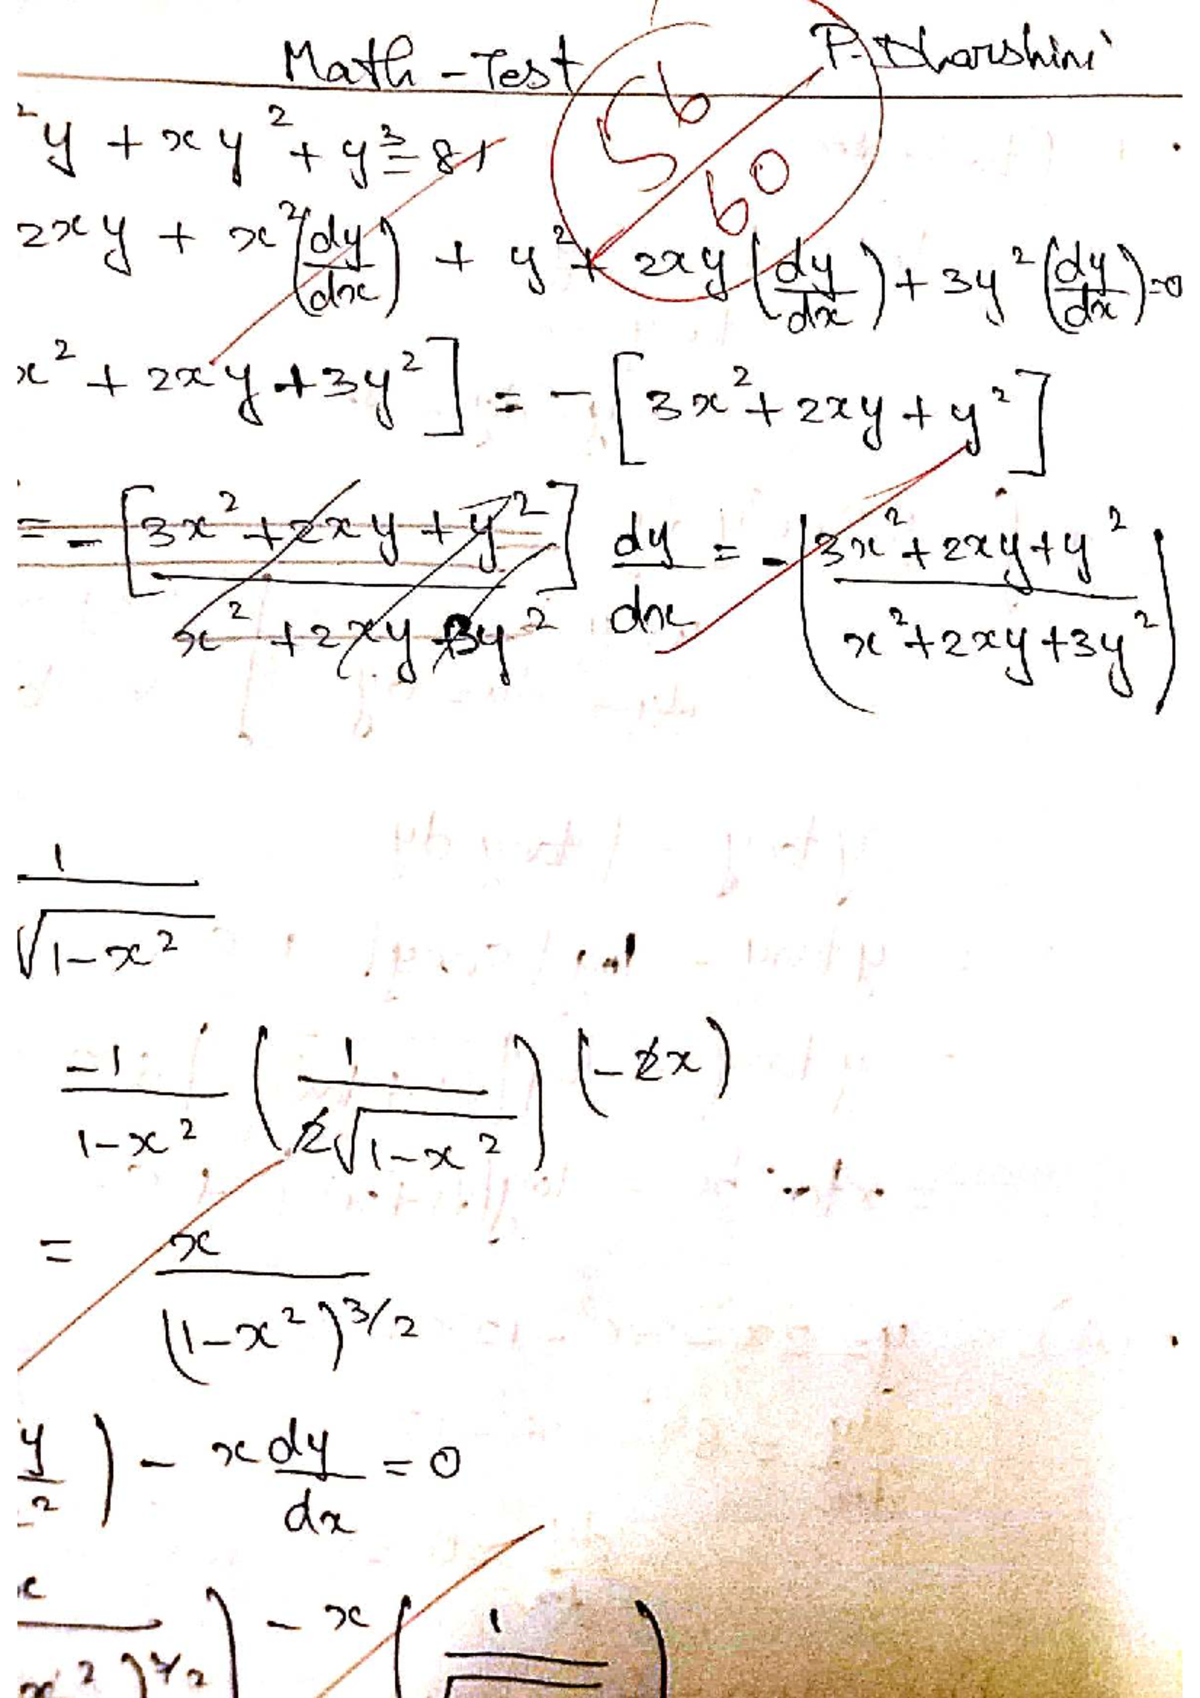 Math - Test P. Dharshini
56/60
²y + xy² + y³ = 81
2xy + x²(dy/dx) + y² + 2xy(dy/dx) + 3y²(dy/dx) = 0
x² + 2xy + 3y²] = -[3x² + 2xy + y²]
= -[3x² + 2xy + y²]/x² + 2xy + 3y² dy/dx = -(3x² + 2xy + y²/x² + 2xy + 3y²)
1/√1-x²
-1/1-x² (1/2√1-x²) (-2x)
= x/(1-x²)^3/2
y/²) - x dy/dx = 0
x/x²)^3/2) - x(1/